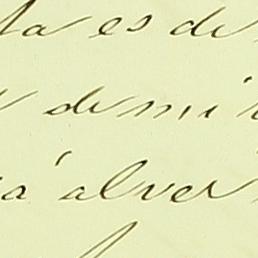 ta es de
de mi
a alver